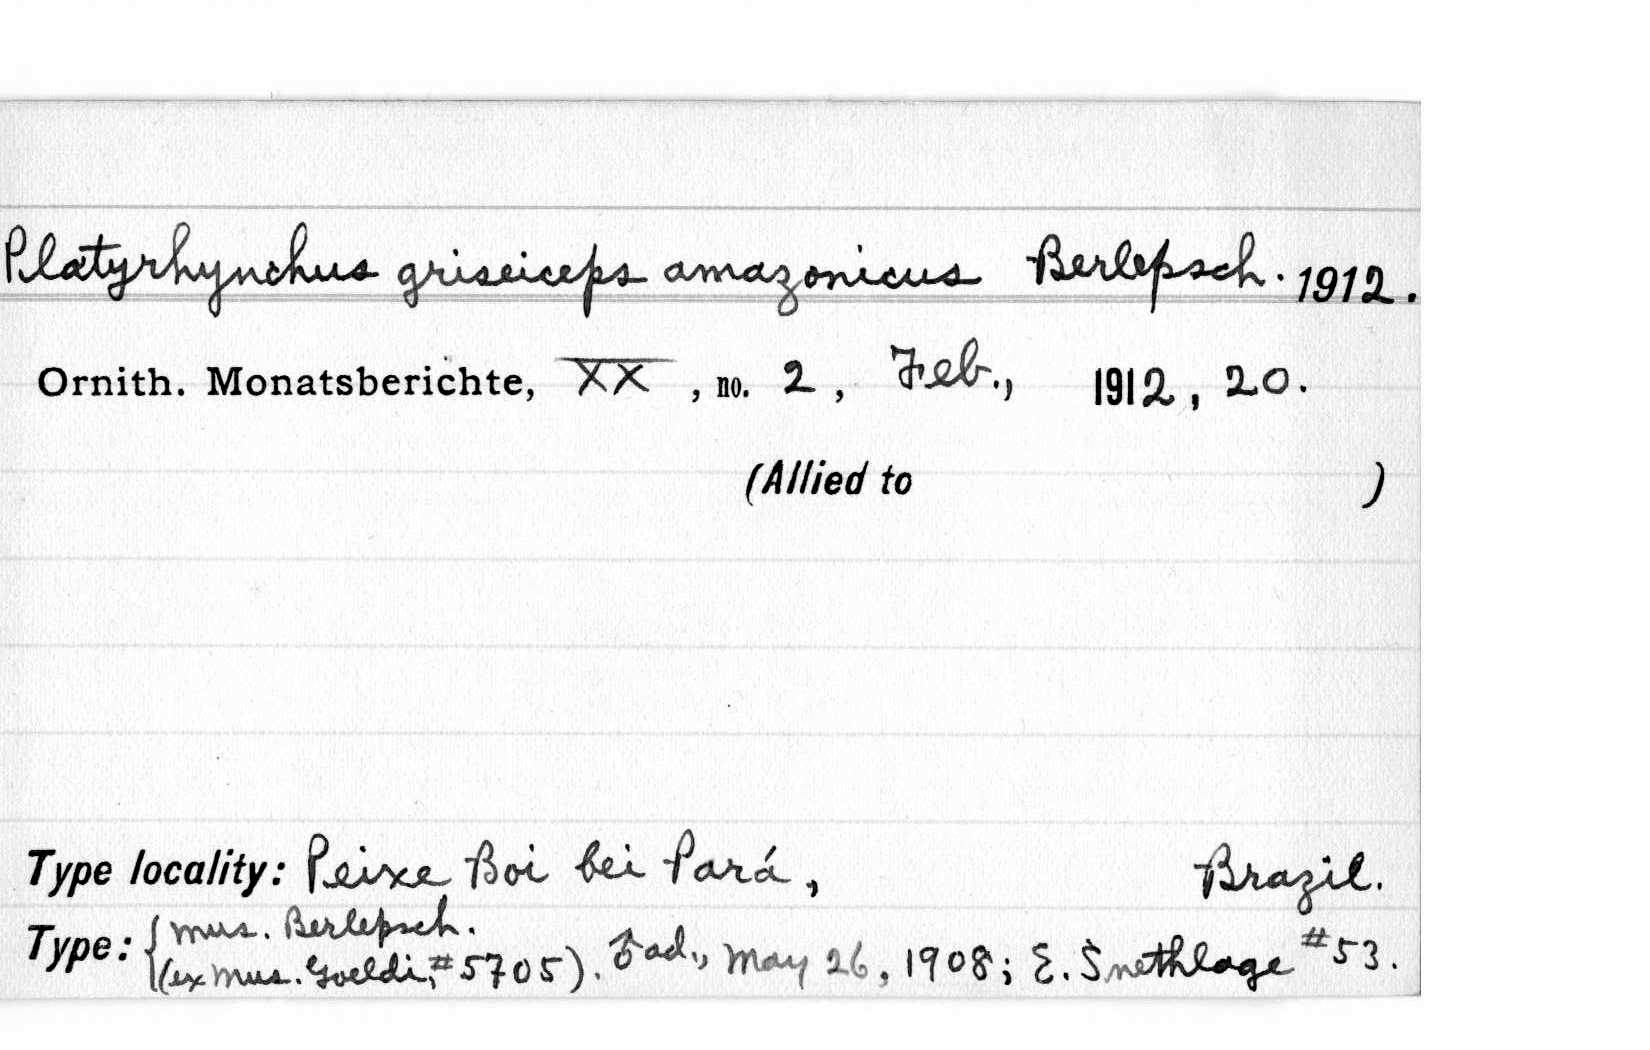 Platyrhynchus griseiceps amazonicus Berlepsch. 1912.
Ornith. Monatsberichte, XX, no. 2, Feb., 1912, 20.
(Allied to )
Type locality: Peixe Boi bei Pará, Brazil.
Type: { Mus. Berlepsch.
(ex Mus. Goeldi, #5705). ♂ ad., May 26, 1908; E. Snethlage #53.